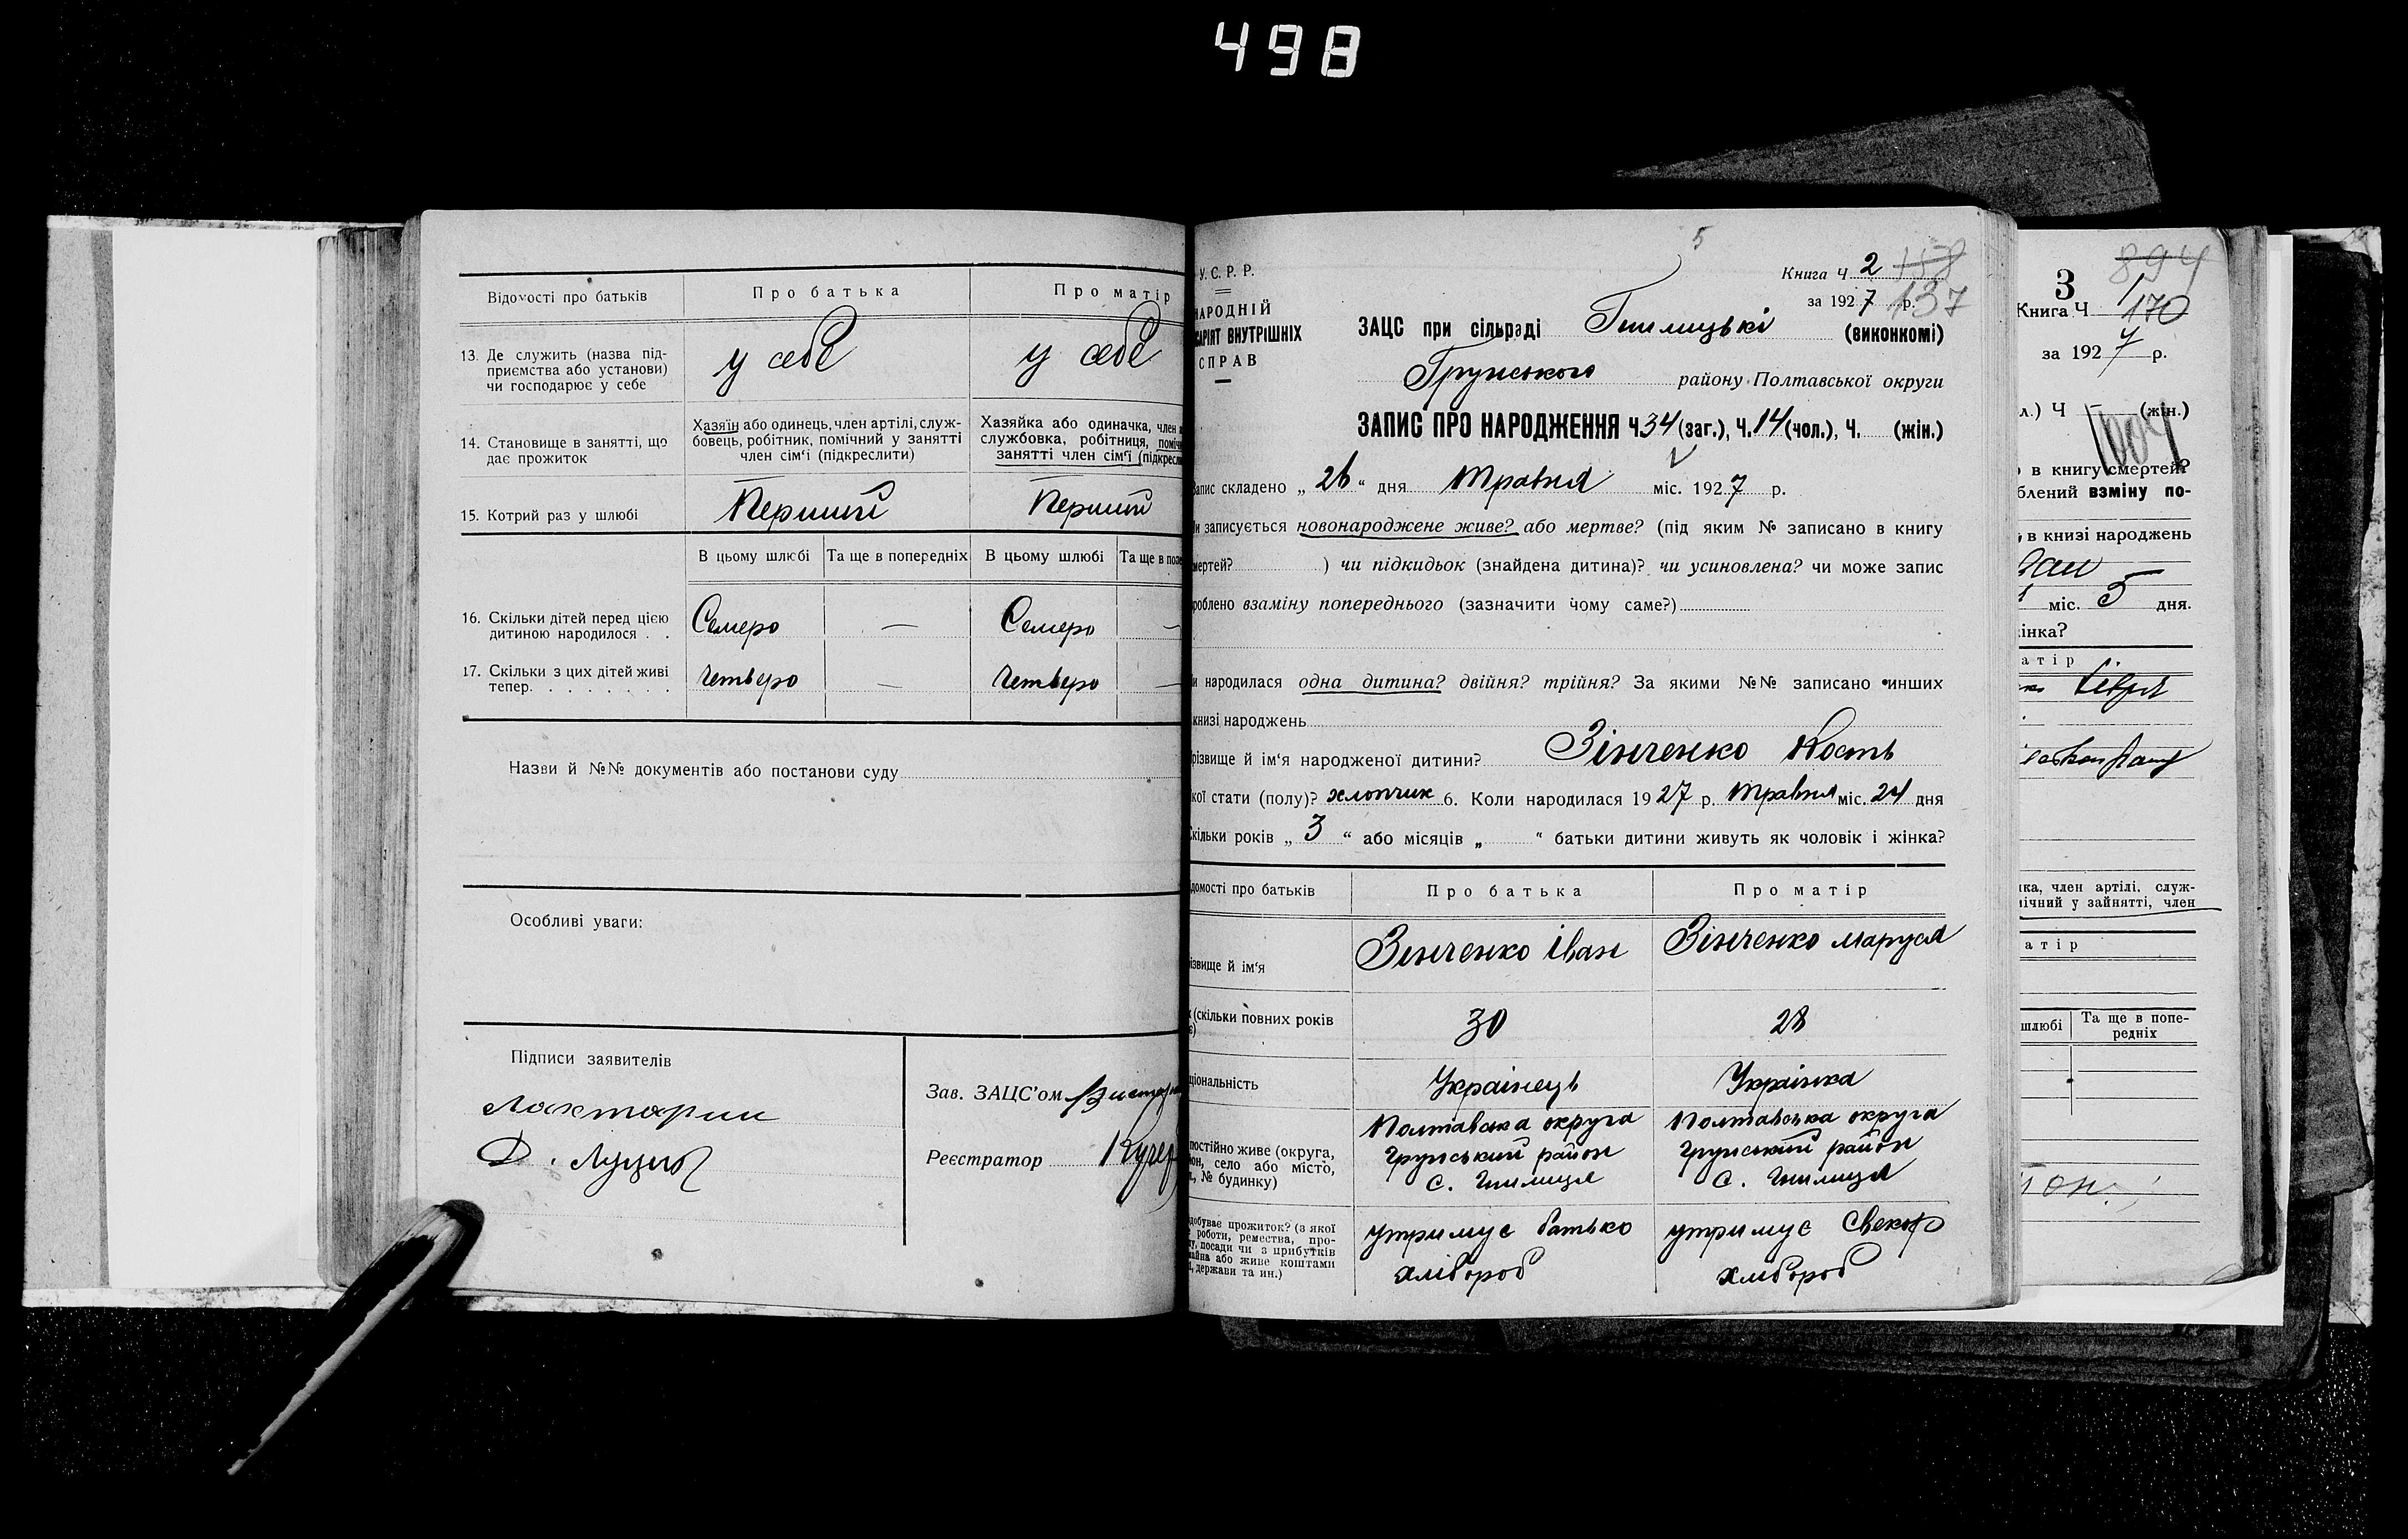 498
Відомості про батьків
Про батька
Про матір
13. Де служить (назва під-
приємства або установи)
чи господарює у себе
у себе
у себе
14. Становище в занятті, що
дає прожиток
Хазяїн або одинець, член артілі, служ-
бовець, робітник, помічний у занятті
член сім'ї (підкреслити)
Хазяйка або одиначка, член
службовка, робітниця,
занятті член сім'ї
15. Котрий раз у шлюбі
Перший
Перший
В цьому шлюбі
Та ще в попередніх
В цьому шлюбі
Та ще в
16. Скільки дітей перед цією
дитиною народилося . .
Семеро
—
Семеро
—
17. Скільки з цих дітей живі
тепер. . . . . . . .
Четверо
—
Четверо
—
Назви й №№ документів або постанови суду
Особливі уваги:
Підписи заявителів
Д.
Зав. ЗАЦС'ом
Реєстратор
У.С.Р.Р.
СПРАВ
5
Книга Ч 2 138
за 1927 р. 137
ЗАЦС при сільраді Гнилицькі (виконкомі)
Грунського району Полтавської округи
ЗАПИС ПРО НАРОДЖЕННЯ Ч 34 (заг.), Ч. 14 (чол.), Ч. (жін.)
складено „ 26 “ дня Травня міс. 1927 р.
записується новонароджене живе? або мертве? (під яким № записано в книгу
) чи підкидьок (знайдена дитина)? чи усиновлена? чи може запис
взаміну попереднього (зазначити чому саме?)
народилася одна дитина? двійня? трійня? За якими №№ записано инших
книзі народжень
й ім'я народженої дитини? Зінченко Кость
стати (полу)? хлопчик 6. Коли народилася 1927 р. Травня міс. 24 дня
років „ 3 “ або місяців „ “ батьки дитини живуть як чоловік і жінка?
про батьків
Про батька
Про матір
й ім'я
Зінченко Іван
Зінченко Маруся
(скільки повних років
30
28
Українець
Українка
постійно живе (округа,
село або місто,
№ будинку)
Полтавська округа
Грунський район
с. Гнилиця
Полтавська округа
Грунський район
с. Гнилиця
прожиток? (з якої
роботи, ремества, про-
посади чи з прибутків
або живе коштами
держави та ин.)
утримує батько
хлібороб
утримує свекор
хлібороб
894
3
Книга Ч 1
170
за 1927 р.
Ч — (жін.)
1004
в книгу смертей?
взміну по-
в книзі народжень
міс. 5 дня.
член артілі, служ-
у зайнятті, член
шлюбі
Та ще в попе-
редніх